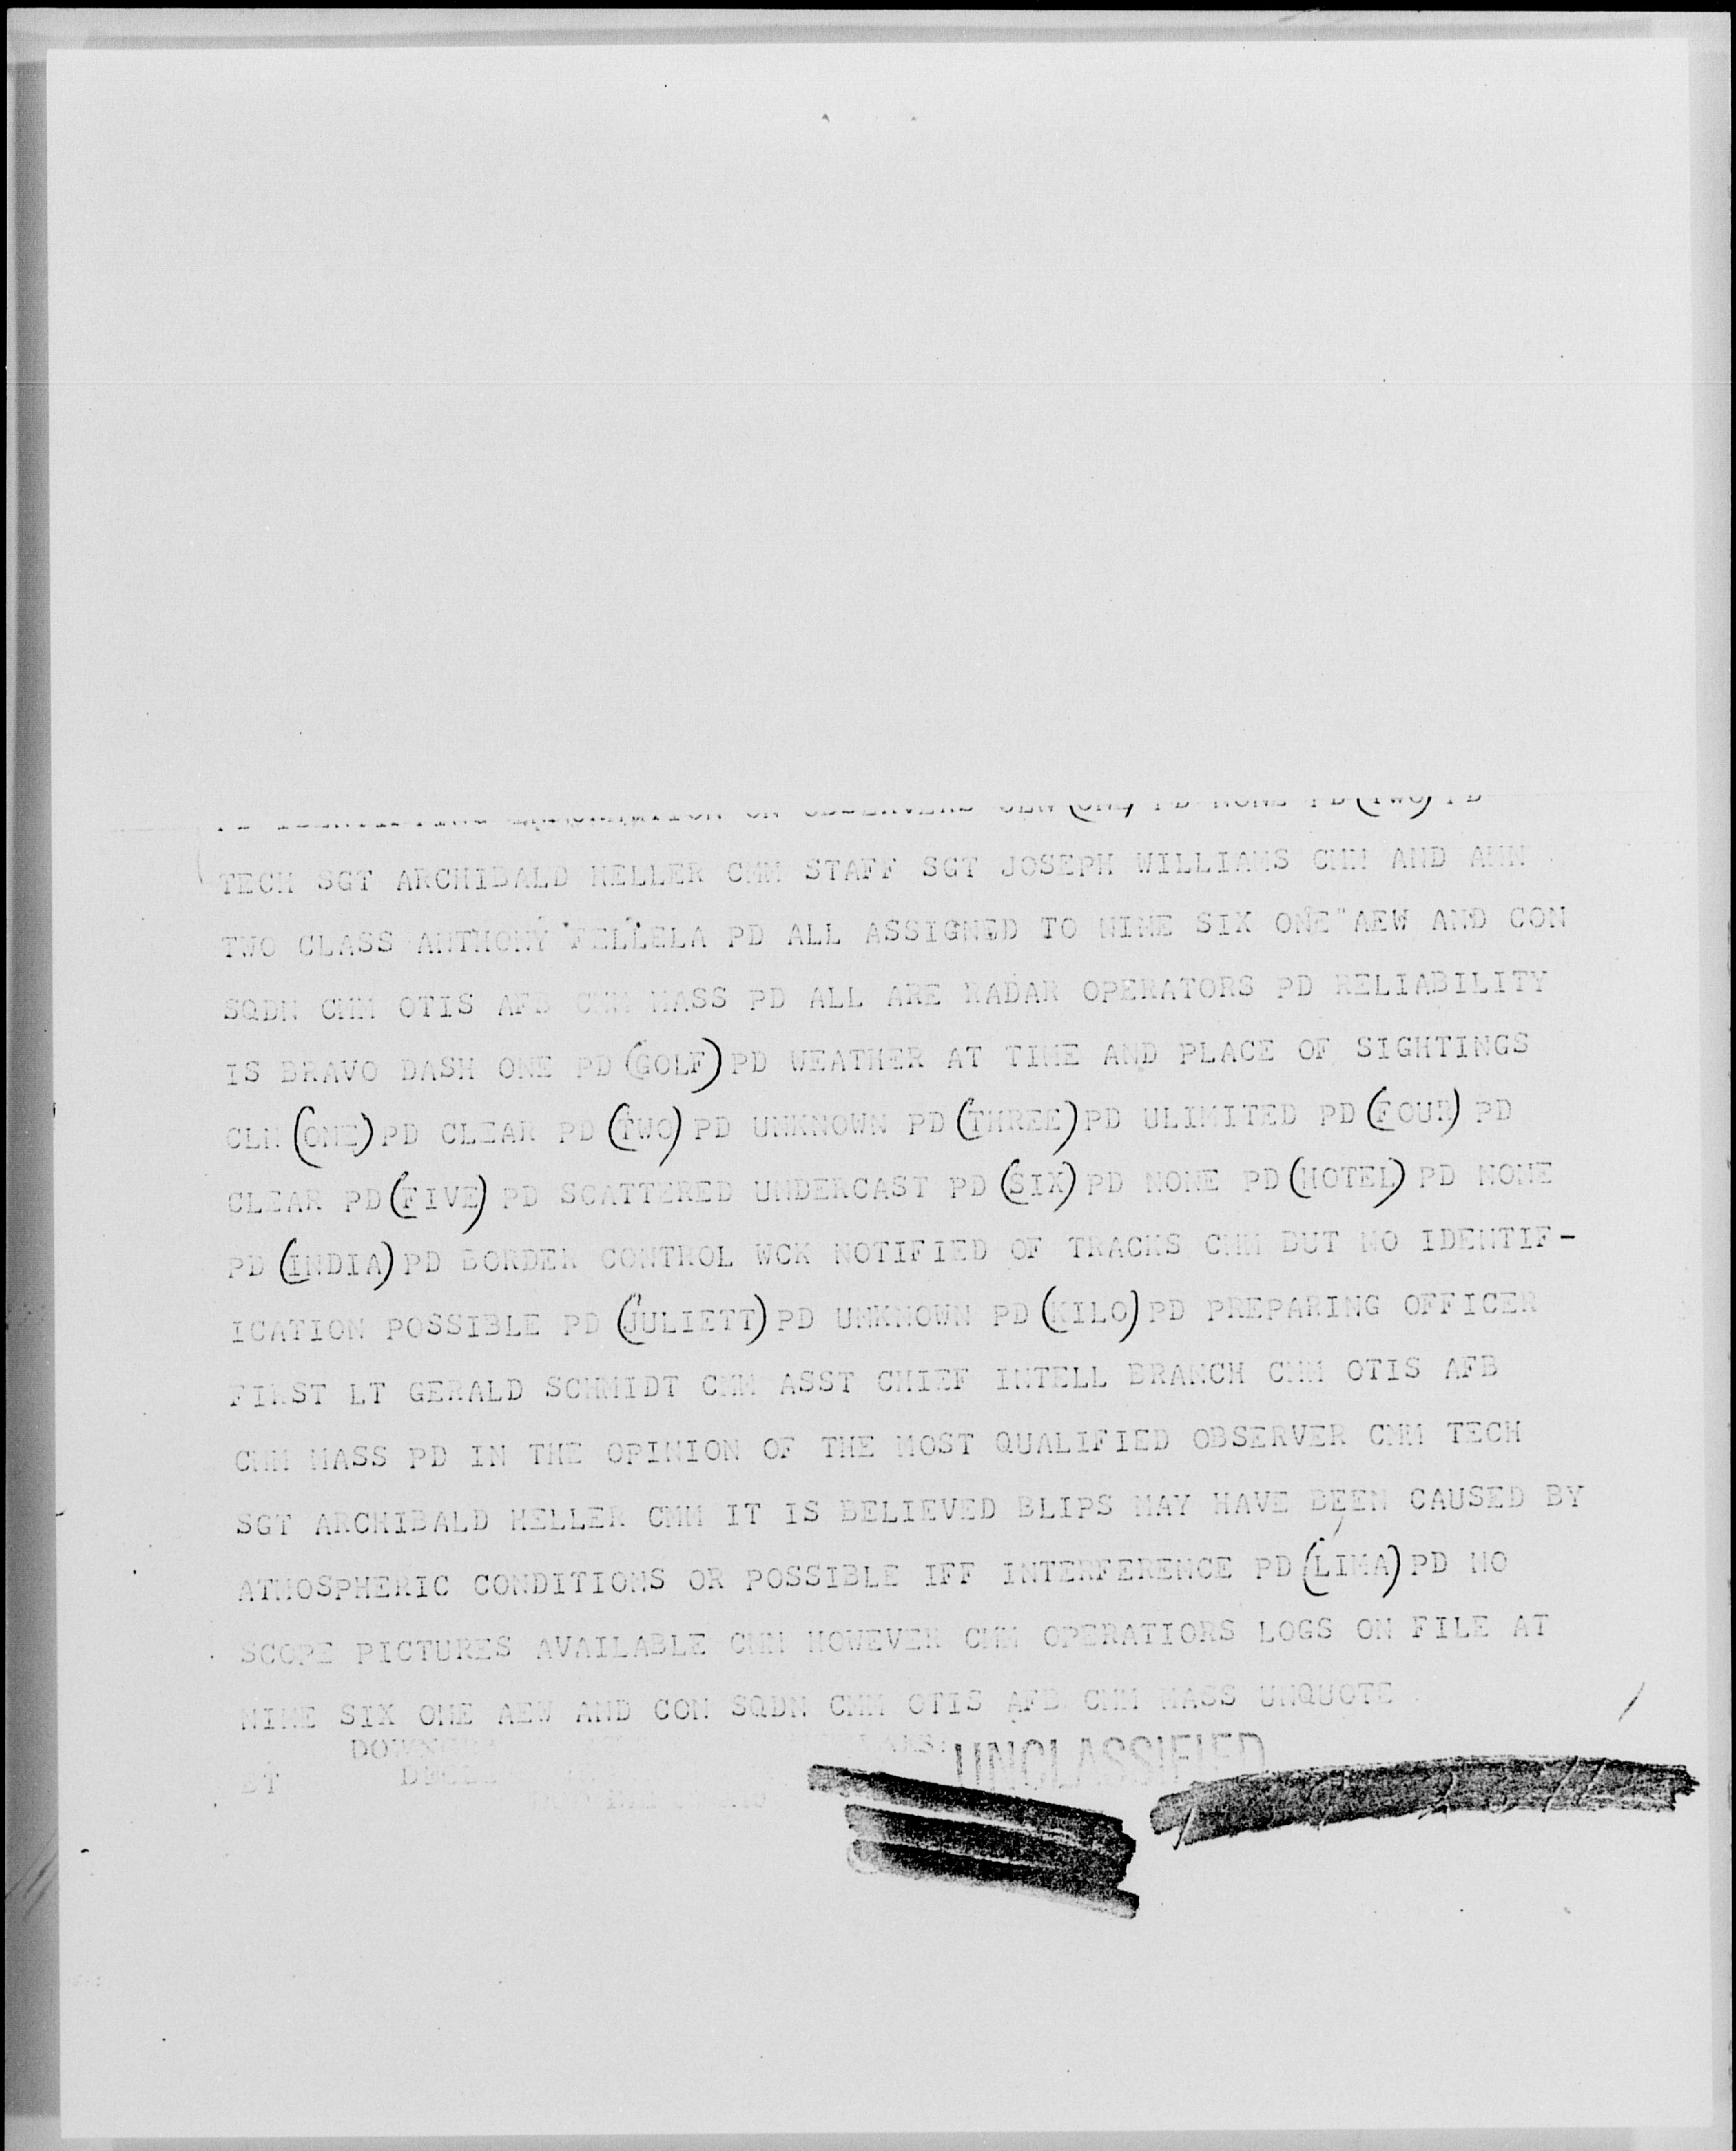 PD IDENTIFYING INFORMATION ON OBSERVERS CLN (ONE) PD NONE PD (TWO) PD
TECH SGT ARCHIBALD HELLER CMM STAFF SGT JOSEPH WILLIAMS CMM AND AMN
TWO CLASS ANTHONY FELLELA PD ALL ASSIGNED TO NINE SIX ONE AEW AND CON
SQDN CMM OTIS AFB CMM MASS PD ALL ARE RADAR OPERATORS PD RELIABILITY
IS BRAVO DASH ONE PD (GOLF) PD WEATHER AT TIME AND PLACE OF SIGHTINGS
CLN (ONE) PD CLEAR PD (TWO) PD UNKNOWN PD (THREE) PD ULIMITED PD (FOUR) PD
CLEAR PD (FIVE) PD SCATTERED UNDERCAST PD (SIX) PD NONE PD (HOTEL) PD NONE
PD (INDIA) PD BORDER CONTROL WCK NOTIFIED OF TRACKS CMM BUT NO IDENTIF-
ICATION POSSIBLE PD (JULIETT) PD UNKNOWN PD (KILO) PD PREPARING OFFICER
FIRST LT GERALD SCHMIDT CMM ASST CHIEF INTELL BRANCH CMM OTIS AFB
CMM MASS PD IN THE OPINION OF THE MOST QUALIFIED OBSERVER CMM TECH
SGT ARCHIBALD HELLER CMM IT IS BELIEVED BLIPS MAY HAVE BEEN CAUSED BY
ATMOSPHERIC CONDITIONS OR POSSIBLE IFF INTERFERENCE PD (LIMA) PD NO
SCOPE PICTURES AVAILABLE CMM HOWEVER CMM OPERATIORS LOGS ON FILE AT
NINE SIX ONE AEW AND CON SQDN CMM OTIS AFB CMM MASS UNQUOTE
UNCLASSIFIED
BT